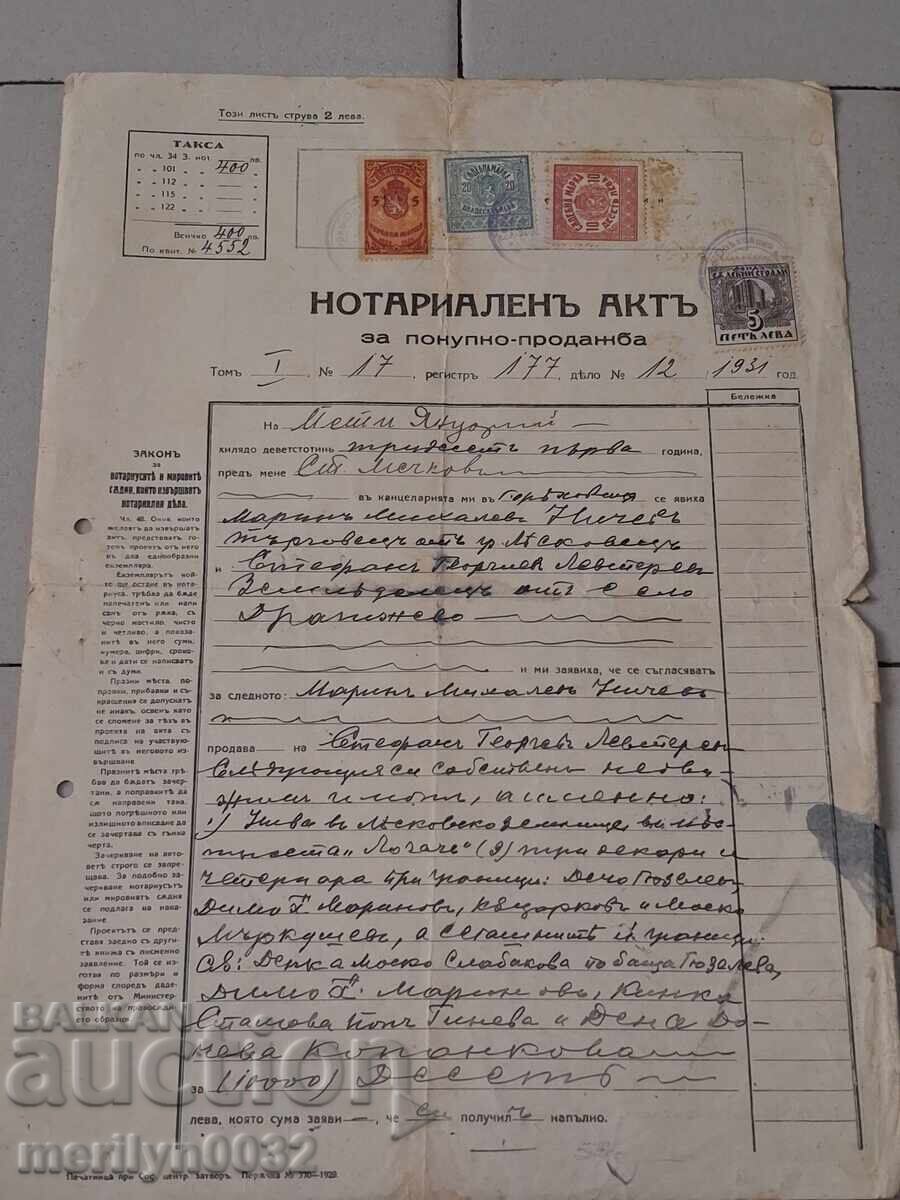 Този листъ струва 2 лева.
ТАКСА
по чл. 34 З. нот. 400 лв.
„ „ 101 „
„ „ 112 „
„ „ 115 „
„ „ 122 „
Всичко 400 лв.
По квит. № 4552
5 5
СѪДЕБНА МАРКА
20 20
ДВАДЕСЕТЬ ЛЕВА
СѪДЕБНА МАРКА
10 ЛЕВА 10
ДЕСЕТЬ
ФОНДЪ
СѪДЕБНИ СГРАДИ
5
ПЕТЬ ЛЕВА
НОТАРИАЛЕНЪ АКТЪ
за покупко-продажба
Томъ I № 17 регистръ 177 дѣло № 12 1931 год.
Бележка
На Шести Януарий
хилядо деветстотинъ тридесетъ първа година,
предъ мене Ст. Мечковъ
въ канцеларията ми въ Горѣховица се явиха
Маринъ Михалевъ Ничевъ
търговецъ отъ гр. Лѣсковецъ
и Стефанъ Георгиевъ Левтеревъ
Земледѣлецъ отъ село
Драгижево
и ми заявиха, че се съгласяватъ
за следното: Маринъ Михалевъ Ничевъ
продава на Стефанъ Георгиевъ Левтеревъ
следующия си собственъ недви-
жимъ имотъ, а именно:
1) Нива въ Лѣсковско землище въ мѣст-
ностьта „Логачъ“ три декари и
четери ара при граници: Дечо Гюзелевъ,
Димо х. Мариновъ, и Моско
Мъркушевъ, а сегашнитѣ ѝ граници
сѫ: Денка Моско Слабакова по баща Гюзелева,
Димо х. Мариновъ, Кинка
Стамова попъ Гинева и Дена До-
нева Копанкова
за (10000) Десеть
лева, която сума заяви, че си получилъ напълно.
ЗАКОНЪ
за
нотариуситѣ и мировитѣ
сѫдии, които извършватъ
нотариални дѣла.
Чл. 48. Ония, които
желаятъ да извършатъ
актъ, представятъ го-
товъ проектъ отъ него
въ два еднообразни
екземпляра.
Екземплярътъ кой-
то ще остане въ нота-
риуса, трѣбва да бѫде
напечатенъ или напи-
санъ отъ рѫка, съ
черно мастило, чисто
и четливо, а показани-
тѣ въ него суми,
нумера, цифри, сроко-
ве и дати се написватъ
и съ думи.
Празни мѣста, по-
правки, прибавки и съ-
кращения се допускатъ
не инакъ, освенъ като
се спомене за тѣхъ въ
подписа на акта съ
подписа на участвую-
щитѣ въ неговото из-
вършване
Празнитѣ мѣста трѣ-
бва да бѫдатъ зачер-
тани, а поправкитѣ да
сѫ направени така,
щото погрѣшното или
излишното вписване да
се зачертава съ тънка
черта.
Зачеркване на акто-
ветѣ строго се запре-
щава. За подобно за-
черкване нотариусътъ
или мировиятъ сѫдия
се подлага на нака-
зание
Проектътъ се пред-
ставя заедно съ други-
тѣ книжа съ писменно
заявление. Той се из-
готвя по размѣри и
форма споредъ даде-
нитѣ отъ Министер-
ството на правосѫди-
ето образци.
Печатница при Соф. центр затворъ. Поръчка № 370—1929.
БАЛКАН
auction
merilyn0032